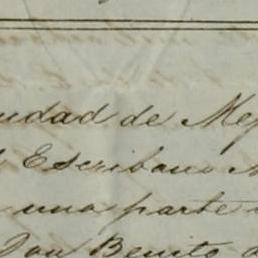 udad de Me
Escribano
una parte
Don Benito